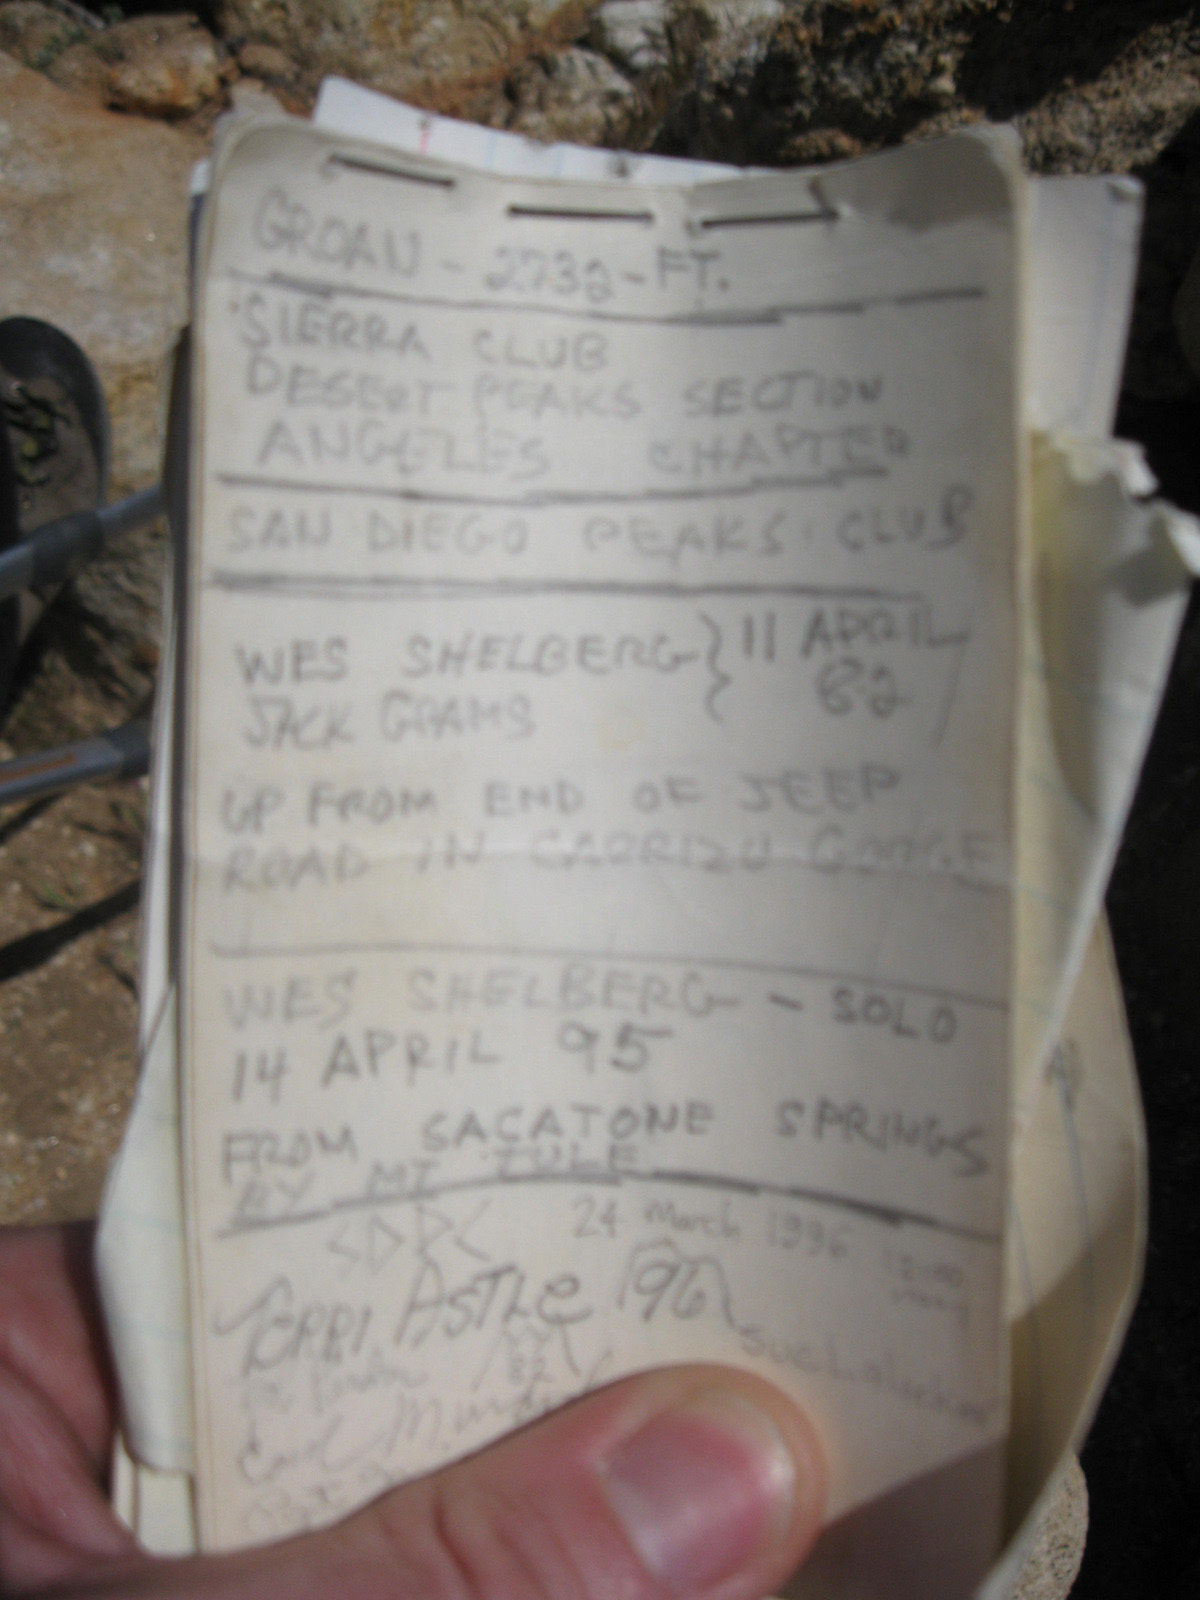 GROAN - 2732 - FT.
SIERRA CLUB
DESERT PEAKS SECTION
ANGELES CHAPTER
SAN DIEGO PEAKS CLUB
WES SHELBERG } 11 APRIL
JACK GRAMS 82
UP FROM END OF JEEP
ROAD IN CARRIZO GORGE
WES SHELBERG - SOLO
14 APRIL 95
FROM SACATONE SPRINGS
BY MT TULE
SDPC 24 March 1996
TERRI ASTLE 96
Carol